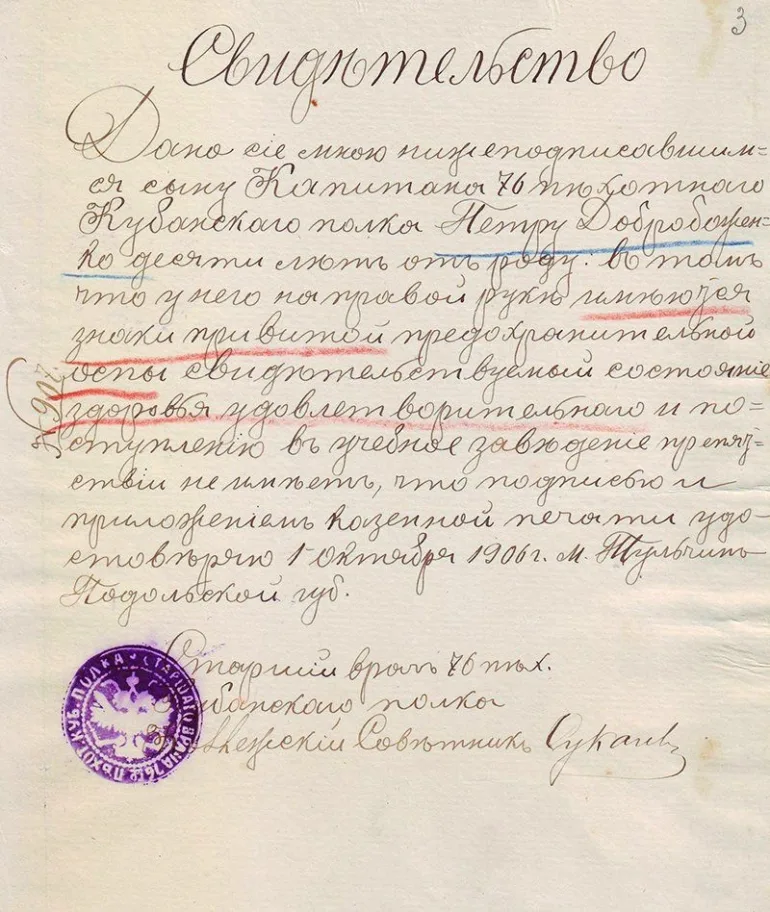 3
Свидѣтельство
Дано сіе мною нижеподписавшим=
ся сыну Капитана 76 пѣхотнаго
Кубанскаго полка Петру Добробожен=
ко десяти лѣтъ отъ роду: въ томъ
что у него на правой рукѣ имѣются
знаки привитой предохранительной
оспы свидѣтельствуемый состояніе
здоровья удовлетворительнаго и по=
ступленію въ учебное заведеніе препят=
ствій не имѣетъ, что подписью и
приложеніемъ казенной печати удо-
стовѣряю 1 октября 1906 г. М. Тульчинъ
Подольской губ.
№ 907
Старшій врачъ 76 пѣх.
Кубанскаго полка
Совѣтникъ
СТАРШАГО ВРАЧА 76го ПѢХОТ. КУБ. ПОЛКА